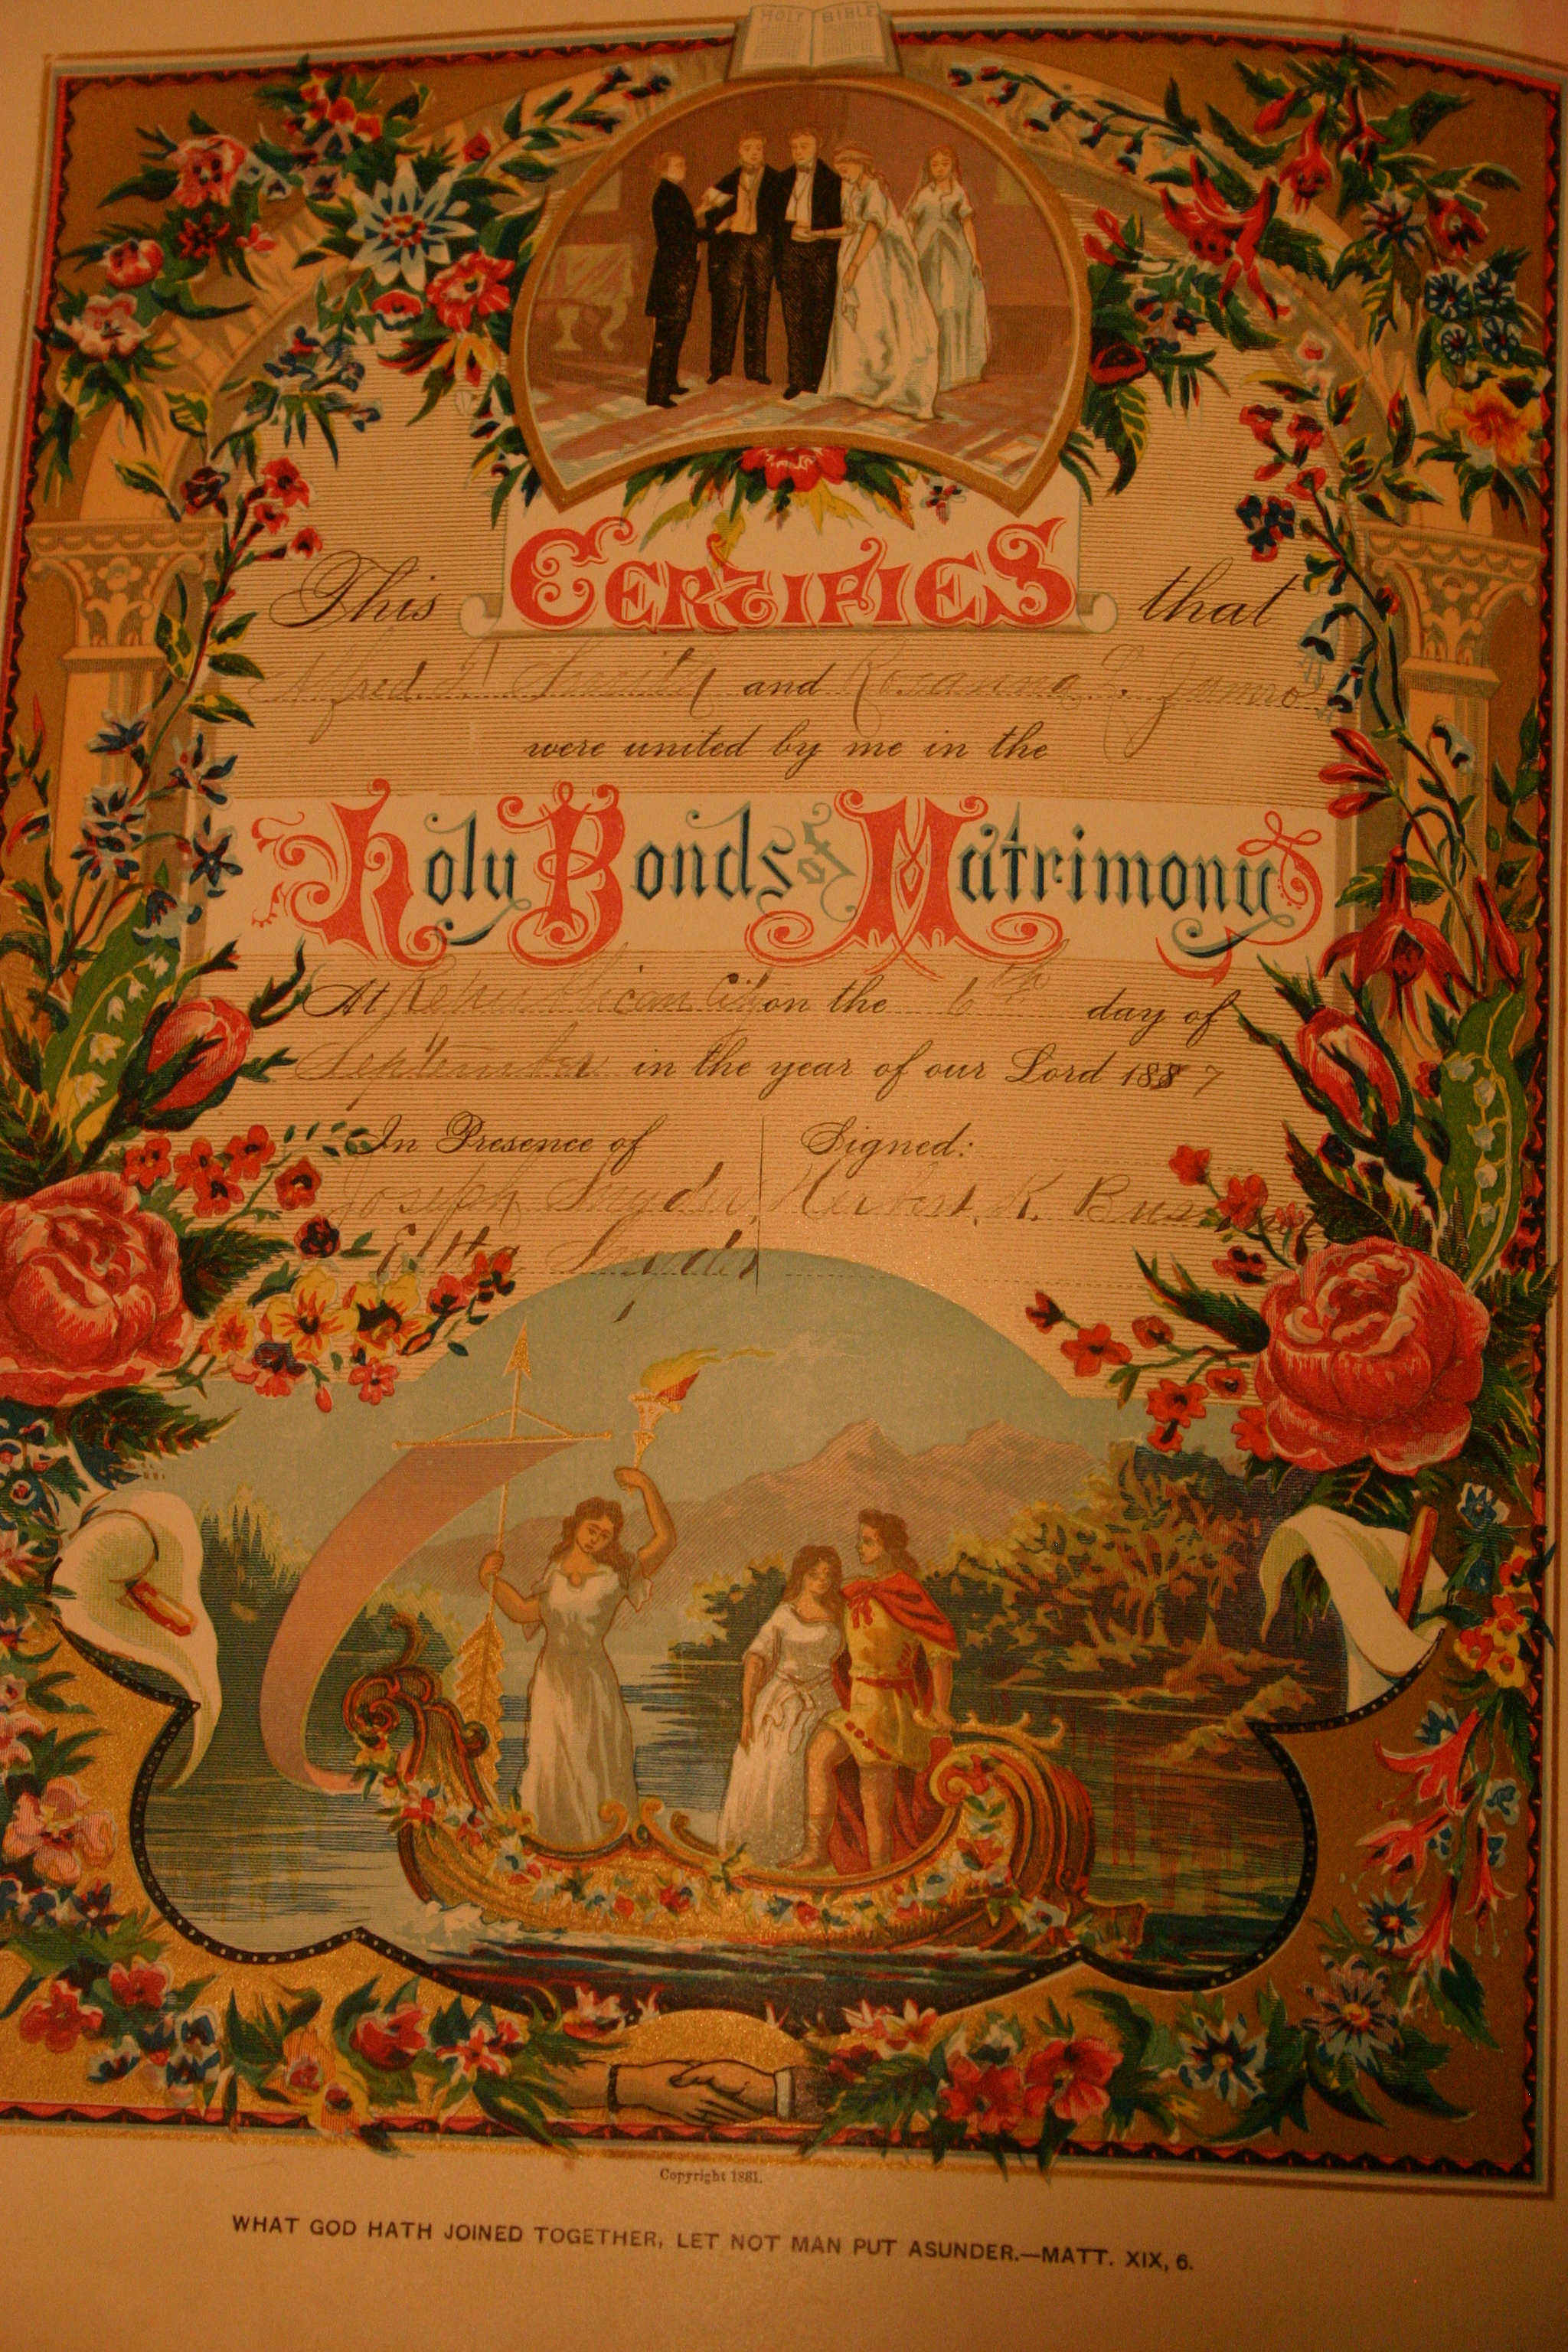 HOLY BIBLE
This CERTIFIES that
Alfred Smith and Rosanna L. Zumro
were united by me in the
Holy Bonds of Matrimony
At Republican City on the 6th day of
September in the year of our Lord 1887
In Presence of
Signed:
Joseph Snyder
Herbert K.
Etta Snyder
Copyright 1881.
WHAT GOD HATH JOINED TOGETHER, LET NOT MAN PUT ASUNDER.—MATT. XIX, 6.